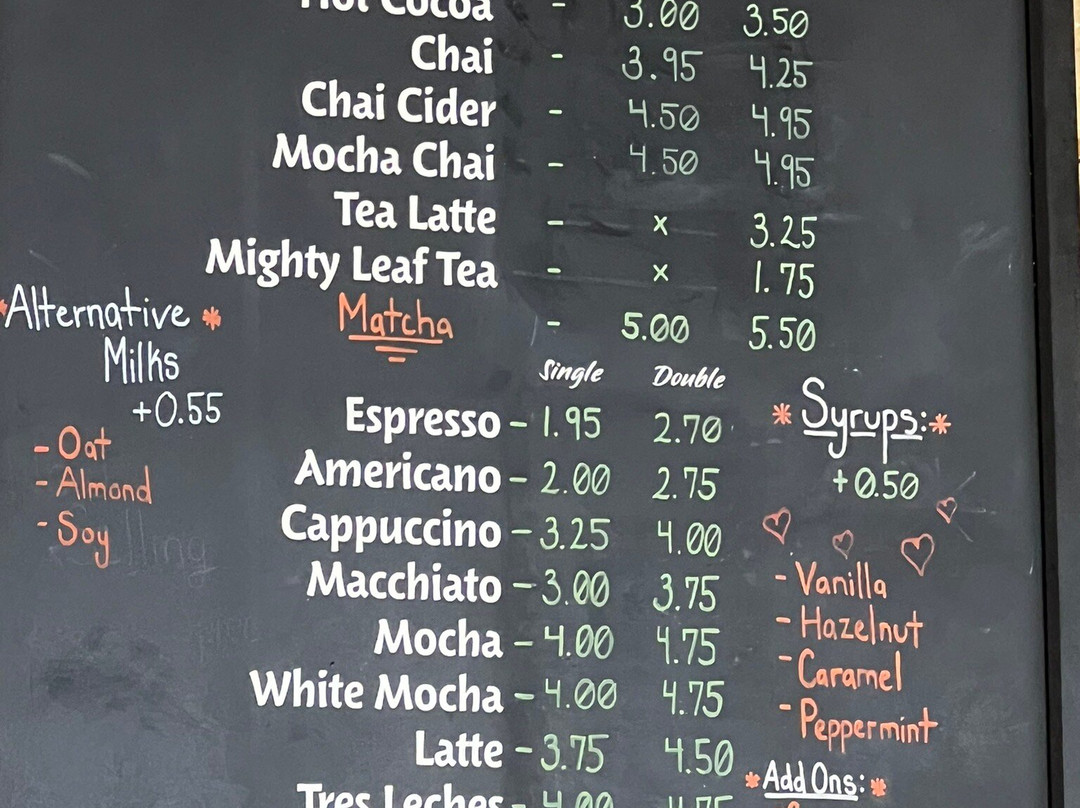 Hot Cocoa - 3.00 3.50
Chai - 3.95 4.25
Chai Cider - 4.50 4.95
Mocha Chai - 4.50 4.95
Tea Latte - x 3.25
Mighty Leaf Tea - x 1.75
Matcha - 5.00 5.50
*Alternative *
Milks
+0.55
- Oat
- Almond
- Soy
Single Double
Espresso - 1.95 2.70
Americano - 2.00 2.75
Cappuccino - 3.25 4.00
Macchiato - 3.00 3.75
Mocha - 4.00 4.75
White Mocha - 4.00 4.75
Latte - 3.75 4.50
Tres Leches - 4.00 4.75
* Syrups: *
+0.50
- Vanilla
- Hazelnut
- Caramel
- Peppermint
* Add Ons: *